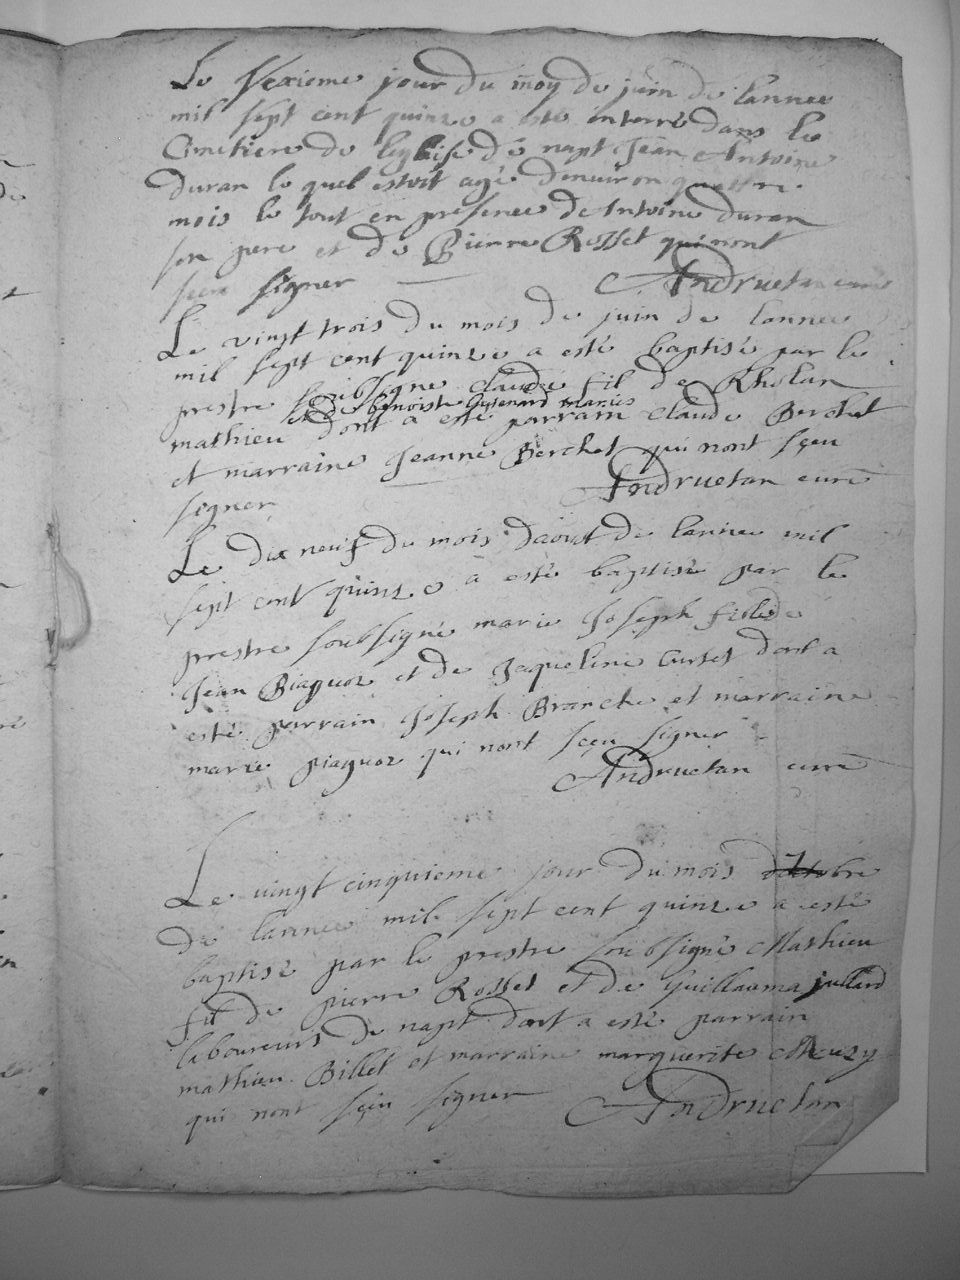 Le sexieme jour du moy de juin de lannee
mil sept cent quinze a esté enterré dans le
Cimetiere de leglise de napt Jean Antoine
duran le quel estoit agé denviron quattre
mois le tout en presence de Antoine duran
son pere et de Pierre Rosset qui nont
sceu signer Andruetan curé
Le vingt trois du mois de juin de lannee
mil sept cent quinze a esté baptisé par le
prestre soubsigne claude fil de
et de benoiste mariés
mathieu dont a esté parrain claude Berchet
et marraine Jeanne Berchet qui nont sçeu
signer Andruetan curé
Le dix neuf du mois daoust de lannee mil
sept cent quinze a esté baptisé par le
prestre soubsigné marie Joseph fille de
Jean Piaguoz et de Jaqueline Curtet dont a
esté parrain Joseph Branche et marraine
marie piaguoz qui nont sçeu signer
Andruetan curé
Le vingt cinquieme jour du mois doctobre
de lannee mil sept cent quinze a esté
baptisé par le prestre soubsigné Mathieu
fil de pierre Rosset et de Guillauma juillard
laboureurs de napt dont a esté parrain
mathieu Billet et marraine marguerite
qui nont sçeu signer Andruetan